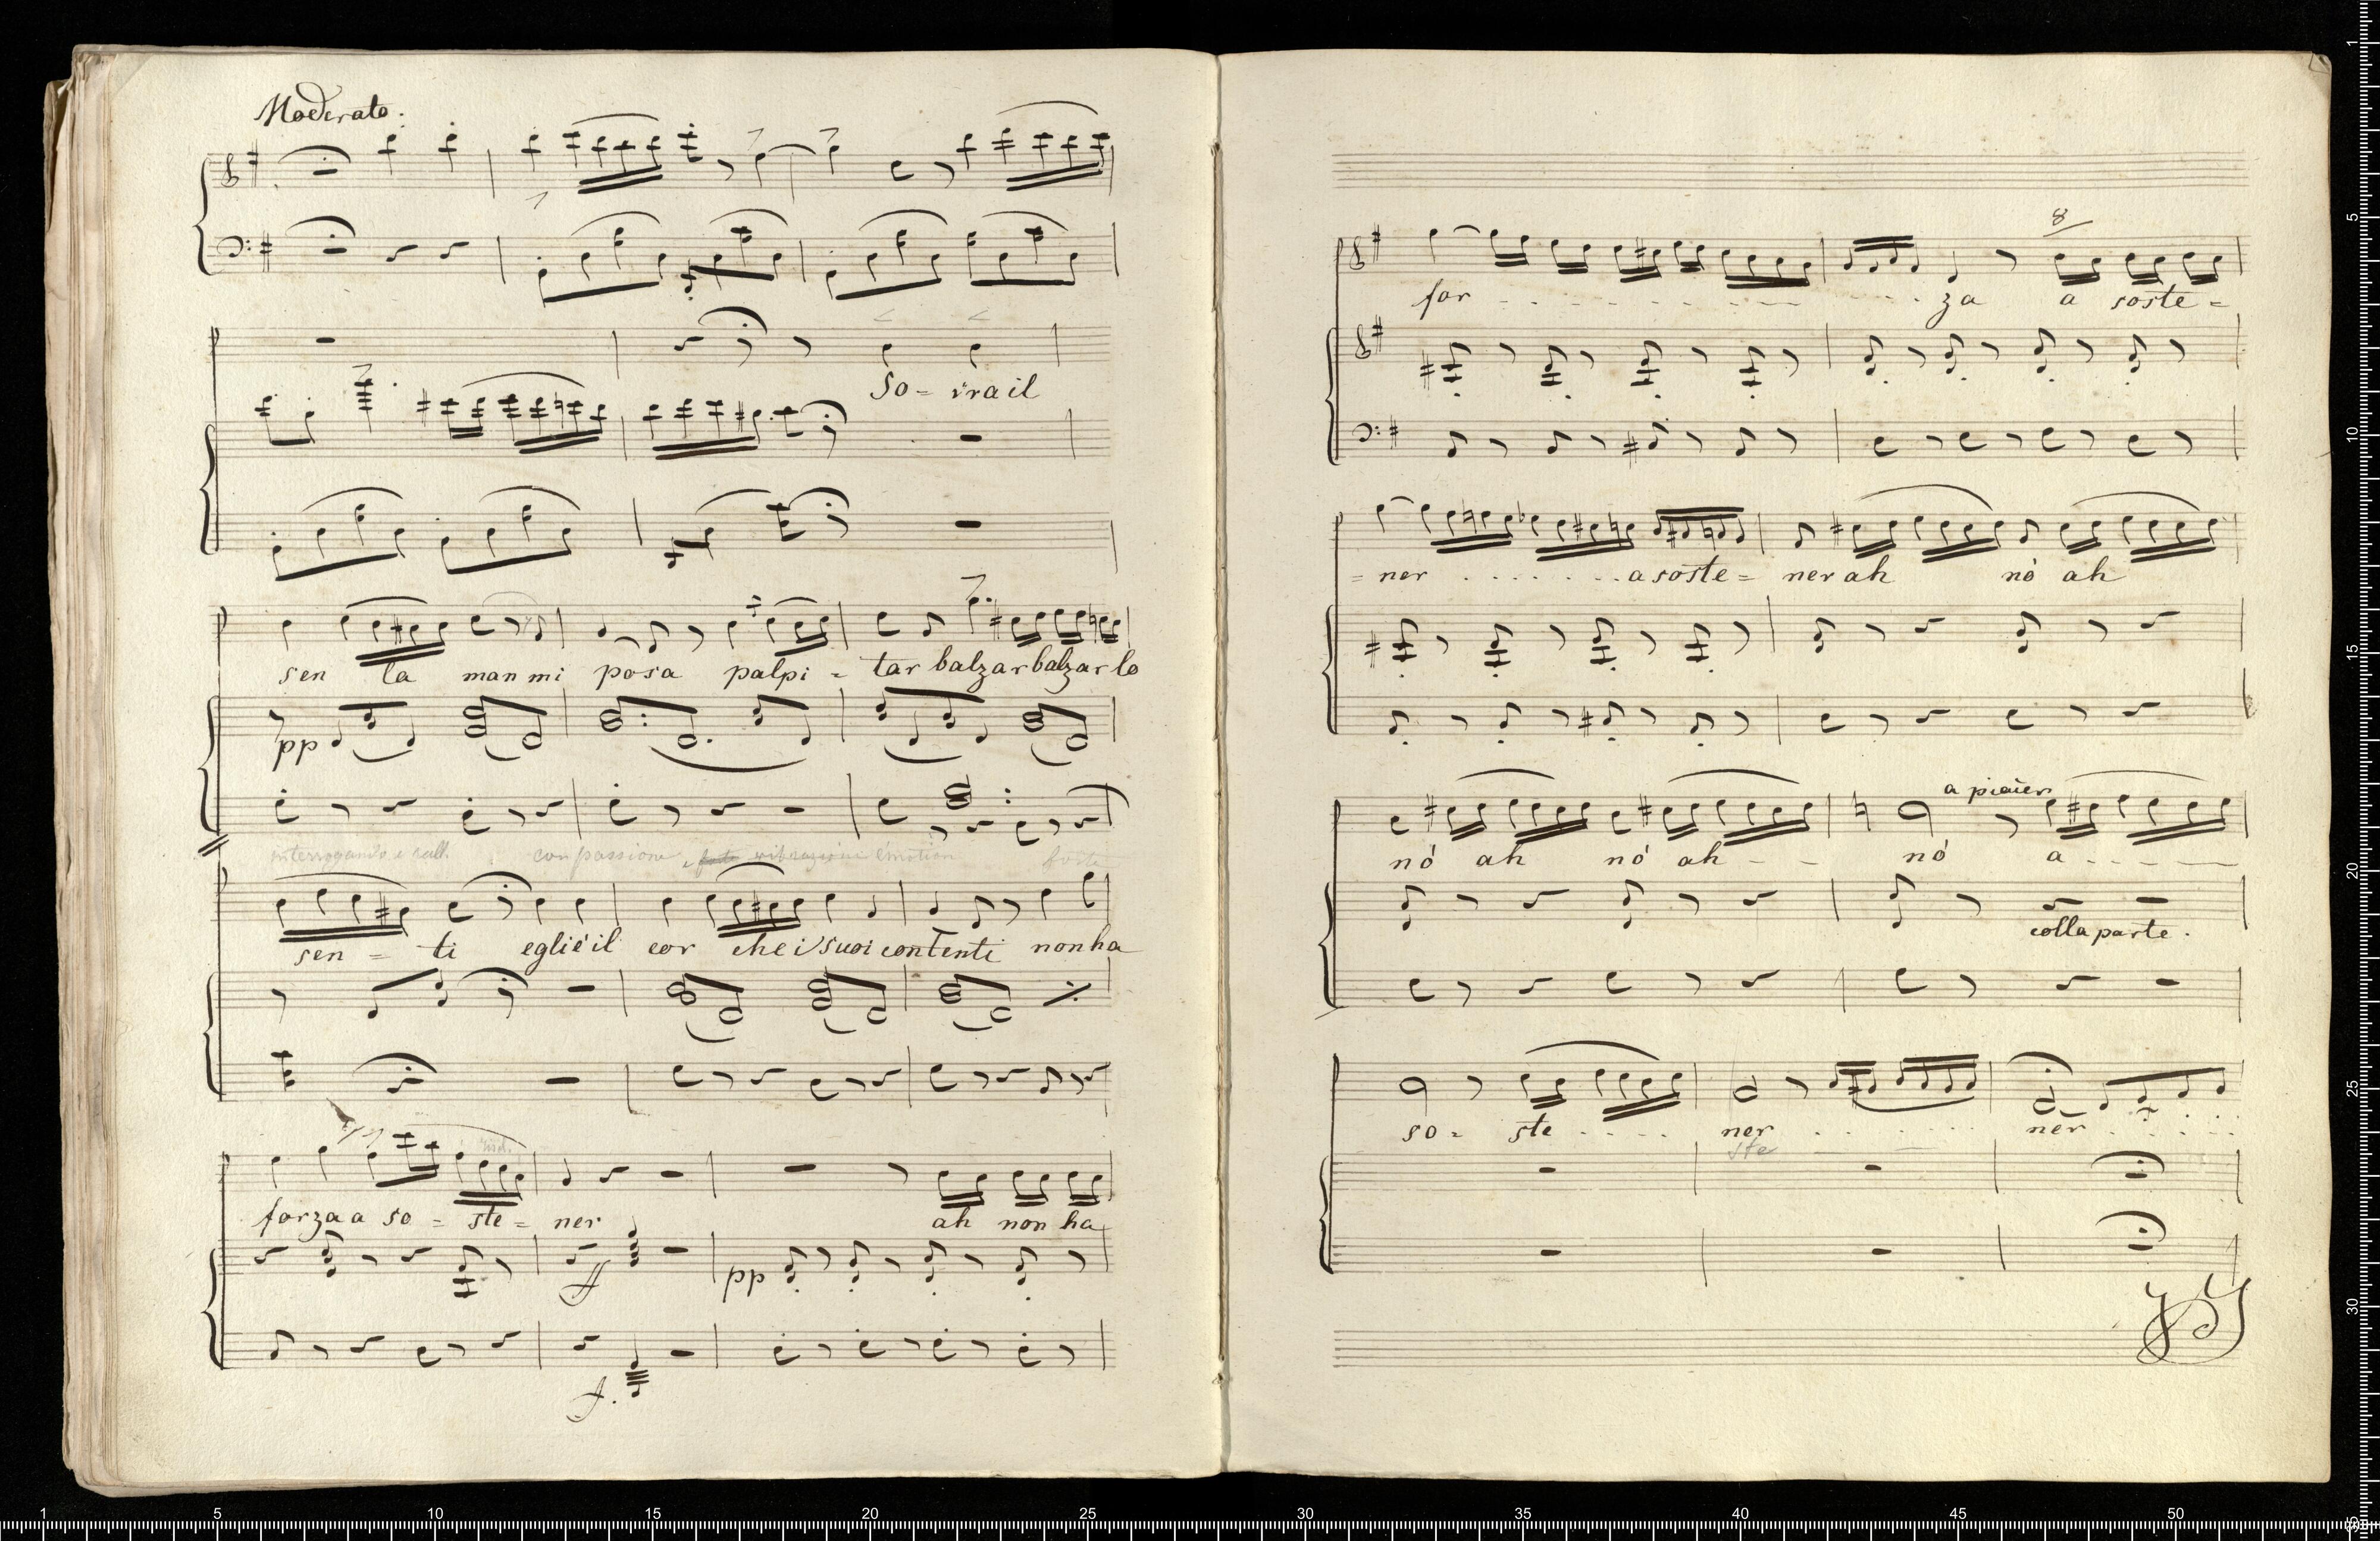 Moderato.
So = vra il
sen la man mi posa palpi = tar balzar balzar lo
pp
interrogando e rall. con passione e forte vibrazione émotion forte
sen = ti egli è il cor che i suoi contenti non ha
forza a so = ste = ner ah non ha
ff pp
f.
8
for - - - - - - - - - - za a soste =
= ner . . . . . . . a soste = ner ah nò ah
a piacer
nò ah nò ah - - nò a - - - -
colla parte.
so = ste . . . . ner . . . . . ner . . . . .
ste